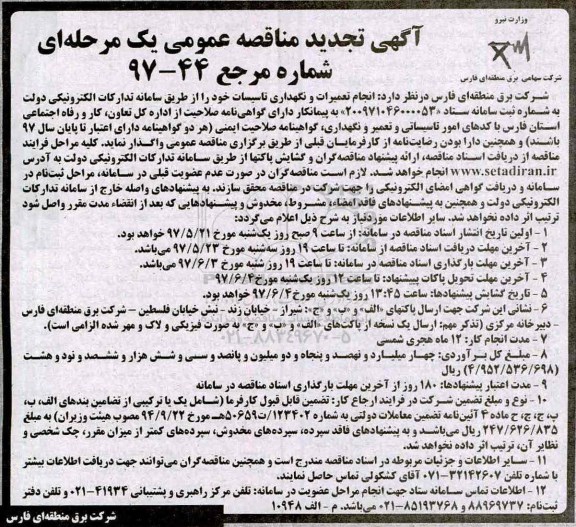 وزارت نیرو
شرکت سهامی برق منطقه‌ای فارس
آگهی تجدید مناقصه عمومی یک مرحله‌ای
شماره مرجع ۴۴-۹۷
شرکت برق منطقه‌ای فارس درنظر دارد: انجام تعمیرات و نگهداری تاسیسات خود را از طریق سامانه تدارکات الکترونیکی دولت
به شماره ثبت سامانه ستاد «۲۰۰۹۷۱۰۴۶۰۰۰۰۵۳» به پیمانکار دارای گواهی‌نامه صلاحیت از اداره کل تعاون، کار و رفاه اجتماعی
استان فارس با کدهای امور تاسیساتی و تعمیر و نگهداری، گواهینامه صلاحیت ایمنی (هر دو گواهینامه دارای اعتبار تا پایان سال ۹۷
باشند) و همچنین دارا بودن رضایت‌نامه از کارفرمایان قبلی از طریق برگزاری مناقصه عمومی واگذار نماید. کلیه مراحل فرایند
مناقصه از دریافت اسناد مناقصه، ارائه پیشنهاد مناقصه‌گران و گشایش پاکتها از طریق سامانه تدارکات الکترونیکی دولت به آدرس
www.setadiran.ir انجام خواهد شد. لازم است مناقصه‌گران در صورت عدم عضویت قبلی در سامانه، مراحل ثبت‌نام در
سامانه و دریافت گواهی امضای الکترونیکی را جهت شرکت در مناقصه محقق سازند. به پیشنهادهای واصله خارج از سامانه تدارکات
الکترونیکی دولت و همچنین به پیشنهادهای فاقد امضاء، مشروط، مخدوش و پیشنهادهایی که بعد از انقضاء مدت مقرر واصل شود
ترتیب اثر داده نخواهد شد. سایر اطلاعات موردنیاز به شرح ذیل اعلام می‌گردد:
۱ - اولین تاریخ انتشار اسناد مناقصه در سامانه: از ساعت ۹ صبح روز یک‌شنبه مورخ ۹۷/۵/۲۱ خواهد بود.
۲ - آخرین مهلت دریافت اسناد مناقصه از سامانه: تا ساعت ۱۹ روز سه‌شنبه مورخ ۹۷/۵/۲۳ می‌باشد.
۳ - آخرین مهلت بارگذاری اسناد مناقصه در سامانه: تا ساعت ۱۹ روز شنبه مورخ ۹۷/۶/۳ می‌باشد.
۴ - آخرین مهلت تحویل پاکات پیشنهاد: تا ساعت ۱۲ روز یک‌شنبه مورخ ۹۷/۶/۴
۵ - تاریخ گشایش پیشنهادها: ساعت ۱۳:۴۵ روز یک‌شنبه مورخ ۹۷/۶/۴ خواهد بود.
۶ - نشانی این شرکت جهت ارسال پاکتهای «الف» و «ب» و «ج»: شیراز - خیابان زند - نبش خیابان فلسطین - شرکت برق منطقه‌ای فارس
- دبیرخانه مرکزی (تذکر مهم: ارسال یک نسخه از پاکت‌های «الف» و «ب» و «ج» به صورت فیزیکی و لاک و مهر شده الزامی است).
۷ - مدت انجام کار: ۱۲ ماه هجری شمسی
۸ - مبلغ کل برآوردی: چهار میلیارد و نهصد و پنجاه و دو میلیون و پانصد و سی و شش هزار و ششصد و نود و هشت
(۴/۹۵۲/۵۳۶/۶۹۸) ریال
۹ - مدت اعتبار پیشنهادها: ۱۸۰ روز از آخرین مهلت بارگذاری اسناد مناقصه در سامانه
۱۰ - نوع و مبلغ تضمین شرکت در فرایند ارجاع کار: تضمین قابل قبول کارفرما (شامل یک یا ترکیبی از تضامین بندهای الف، ب،
پ، ج، چ، ح ماده ۴ آئین‌نامه تضمین معاملات دولتی به شماره ۱۲۳۴۰۲/ت۵۰۶۵۹هـ مورخ ۹۴/۹/۲۲ مصوب هیئت وزیران) به مبلغ
۲۴۷/۶۲۶/۸۳۵ ریال می‌باشد و به پیشنهادهای فاقد سپرده، سپرده‌های مخدوش، سپرده‌های کمتر از میزان مقرر، چک شخصی و
نظایر آن، ترتیب اثر داده نخواهد شد.
۱۱ - سایر اطلاعات و جزئیات مربوطه در اسناد مناقصه مندرج است و همچنین مناقصه‌گران می‌توانند جهت دریافت اطلاعات بیشتر
با شماره تلفن ۳۲۱۴۲۶۰۷-۰۷۱ آقای کشکولی تماس حاصل نمایند.
۱۲ - اطلاعات تماس سامانه ستاد جهت انجام مراحل عضویت در سامانه: تلفن مرکز راهبری و پشتیبانی ۴۱۹۳۴-۰۲۱ و تلفن دفتر
ثبت‌نام: ۸۸۹۶۹۷۳۷ و ۸۵۱۹۳۷۶۸-۰۲۱ می‌باشد. م - الف ۱۰۹۴۸
شرکت برق منطقه‌ای فارس